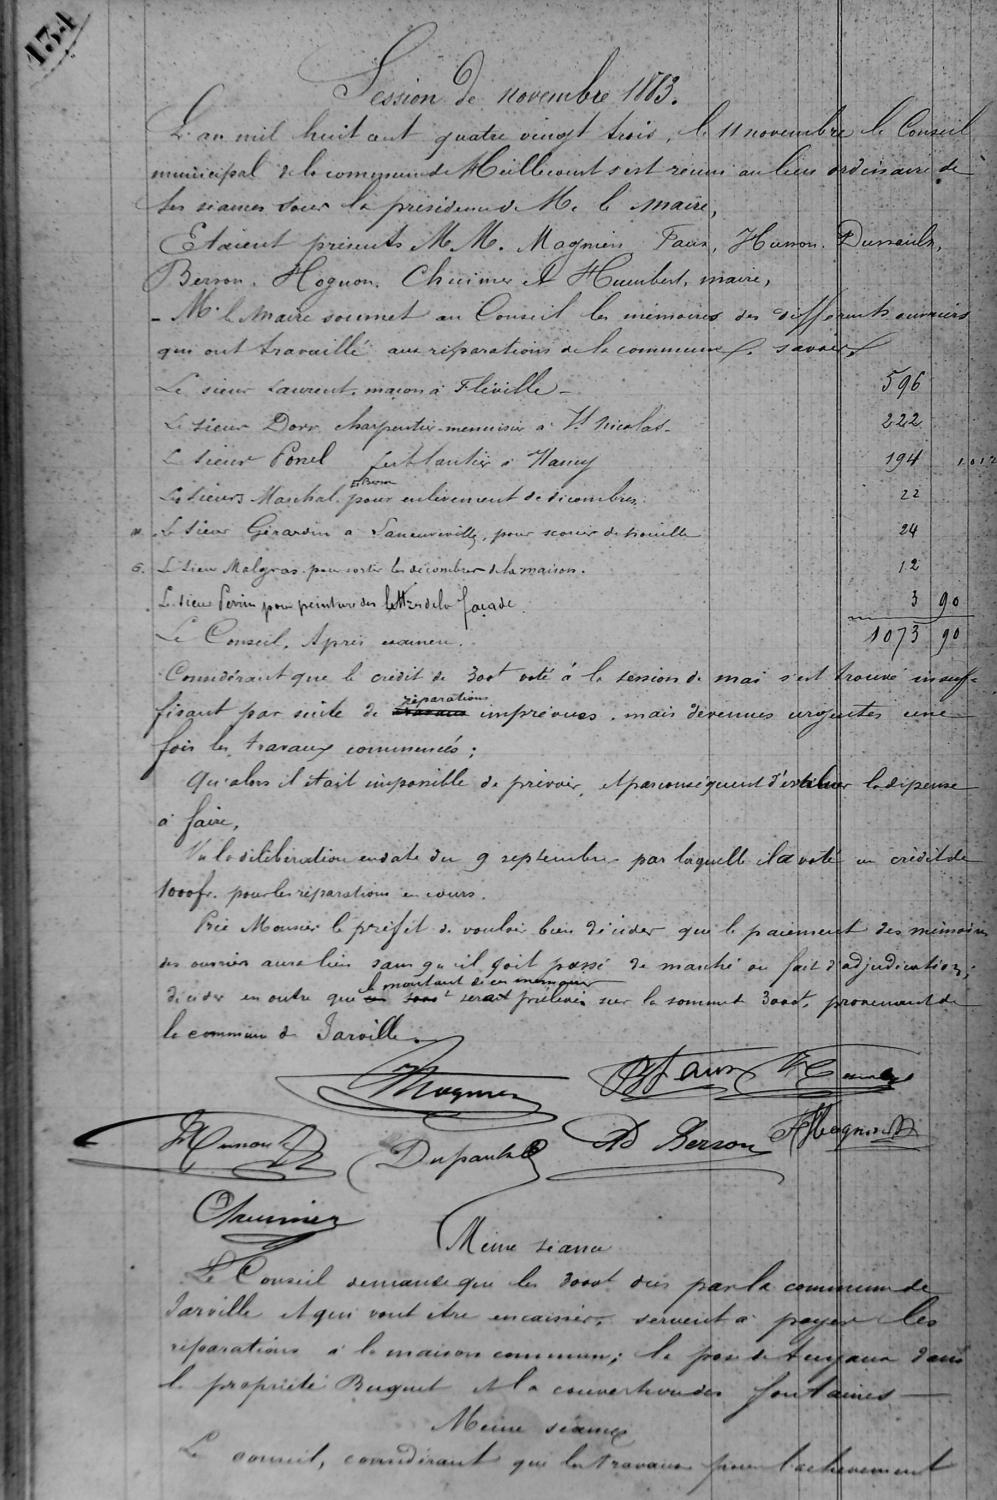 134
Session de novembre 1883.
L'an mil huit cent quatre vingt trois, le 11 novembre le Conseil
municipal de la commune de Heillecourt s'est réuni au lieu ordinaire de
ses séances sous la présidence de M. le maire,
Etaient présents M M. Magnien, Faux, Husson, Dupaulx,
Berson, Hognon, Chuimer et Humbert, maire,
- M. le Maire soumet au Conseil les mémoires des différents ouvriers
qui ont travaillé aux réparations de la commune, savoir
Le sieur Laurent, maçon à Fléville - 596
Le sieur Dorr, charpentier-menuisier à St Nicolas - 222
Le sieur Ponel ferblantier à Nancy 194 1012
Les sieurs Marchal pour enlèvement de décombres 22
Le sieur Girardin à Laneuveville, pour scories de houille 24
6. Le sieur Malgras pour sortir les décombres de la maison. 12
Le sieur Perrin pour peinture des lettres de la façade. 3 90
Le Conseil, Après examen. 1073 90
Considérant que le crédit de 300f voté à la session de mai s'est trouvé insuf-
fisant par suite de travaux réparations imprévues, mais devenues urgentes une
fois les travaux commencés;
Qu'alors il était impossible de prévoir, et par conséquent d'évaluer la dépense
à faire,
Vu la délibération en date du 9 septembre par laquelle il a voté un crédit de
1000f. pour les réparations en cours.
Prie Monsieur le préfet de vouloir bien décider que le paiement des mémoires
des ouvriers aura lieu sans qu'il soit passé de marché ou fait d'adjudication;
le montant de ces mémoires
décider en outre que serait prélevé sur la somme de 3000f. provenant de
la commune de Jarville.
Magnien Faux
Husson Dupaulx Ad Berson
Chuimer
Même séance
Le Conseil demande que les 3000f dûs par la commune de
Jarville et qui vont être encaissés, servent à payer les
réparations à la maison commune; la pose de tuyaux dans
la propriété Buquet et la couverture des fontaines -
Même séance
Le conseil, considérant que les travaux pour l'achèvement